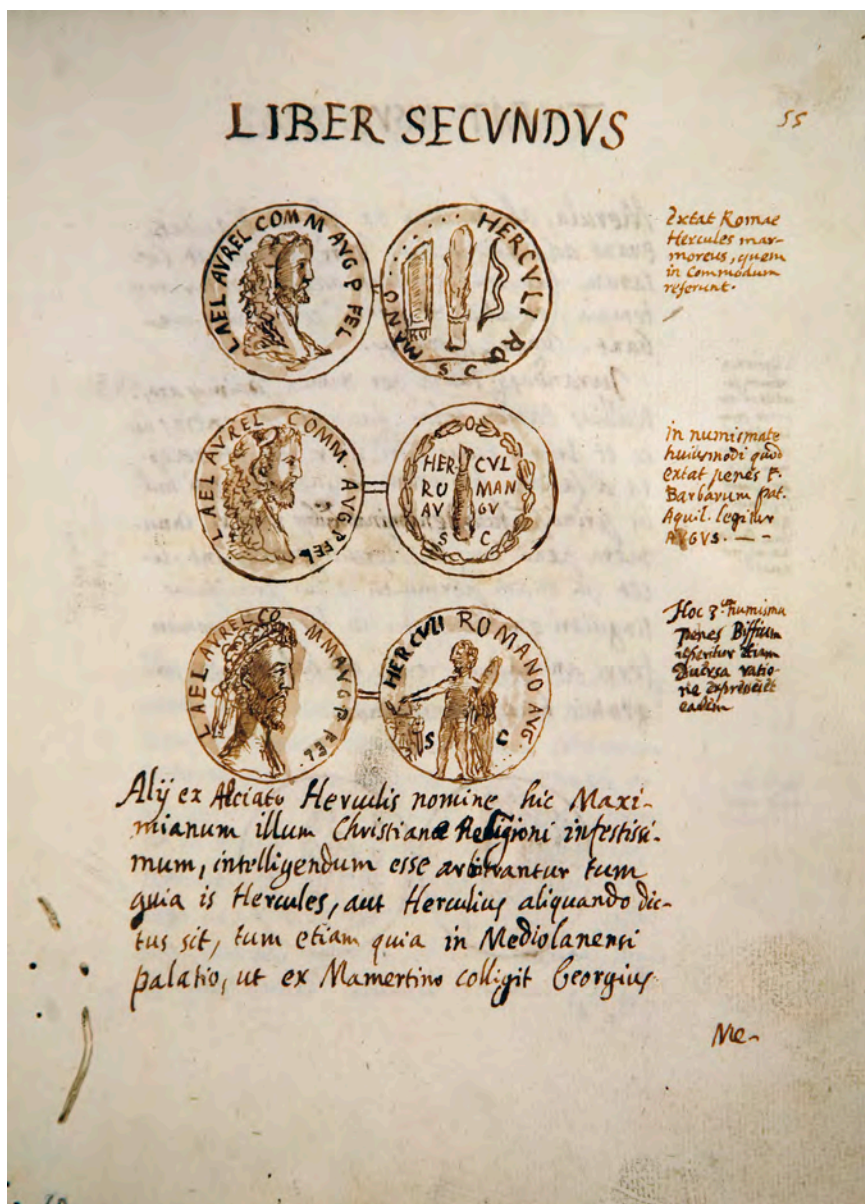 LIBER SECVNDVS
55
L AEL AVREL COMM AVG P FEL
HERCVLI RO
MANO
S C
Extat Romae
Hercules mar-
moreus, quem
in Commodum
referunt.
L AEL AVREL COMM. AVG P FEL
HER CVL
RO MAN
AV GV
S C
In numismate
huiusmodi quod
extat penes P.
Barbarum pat.
Aquil. legitur
AVGVS. — —
L AEL AVREL CO MM AVG P FEL.
HERCVLI ROMANO AVG.
S C
Hoc 3. numisma
penes Biffium
reperitur etiam
Diversa ratio-
ne
eadem
Alij ex Alciato Herculis nomine hic Maxi-
mianum illum Christianae Religioni infestissi-
mum, intelligendum esse arbitrantur tum
quia is Hercules, aut Herculius aliquando dic-
tus sit, tum etiam quia in Mediolanensi
palatio, ut ex Mamertino colligit Georgius
Me-